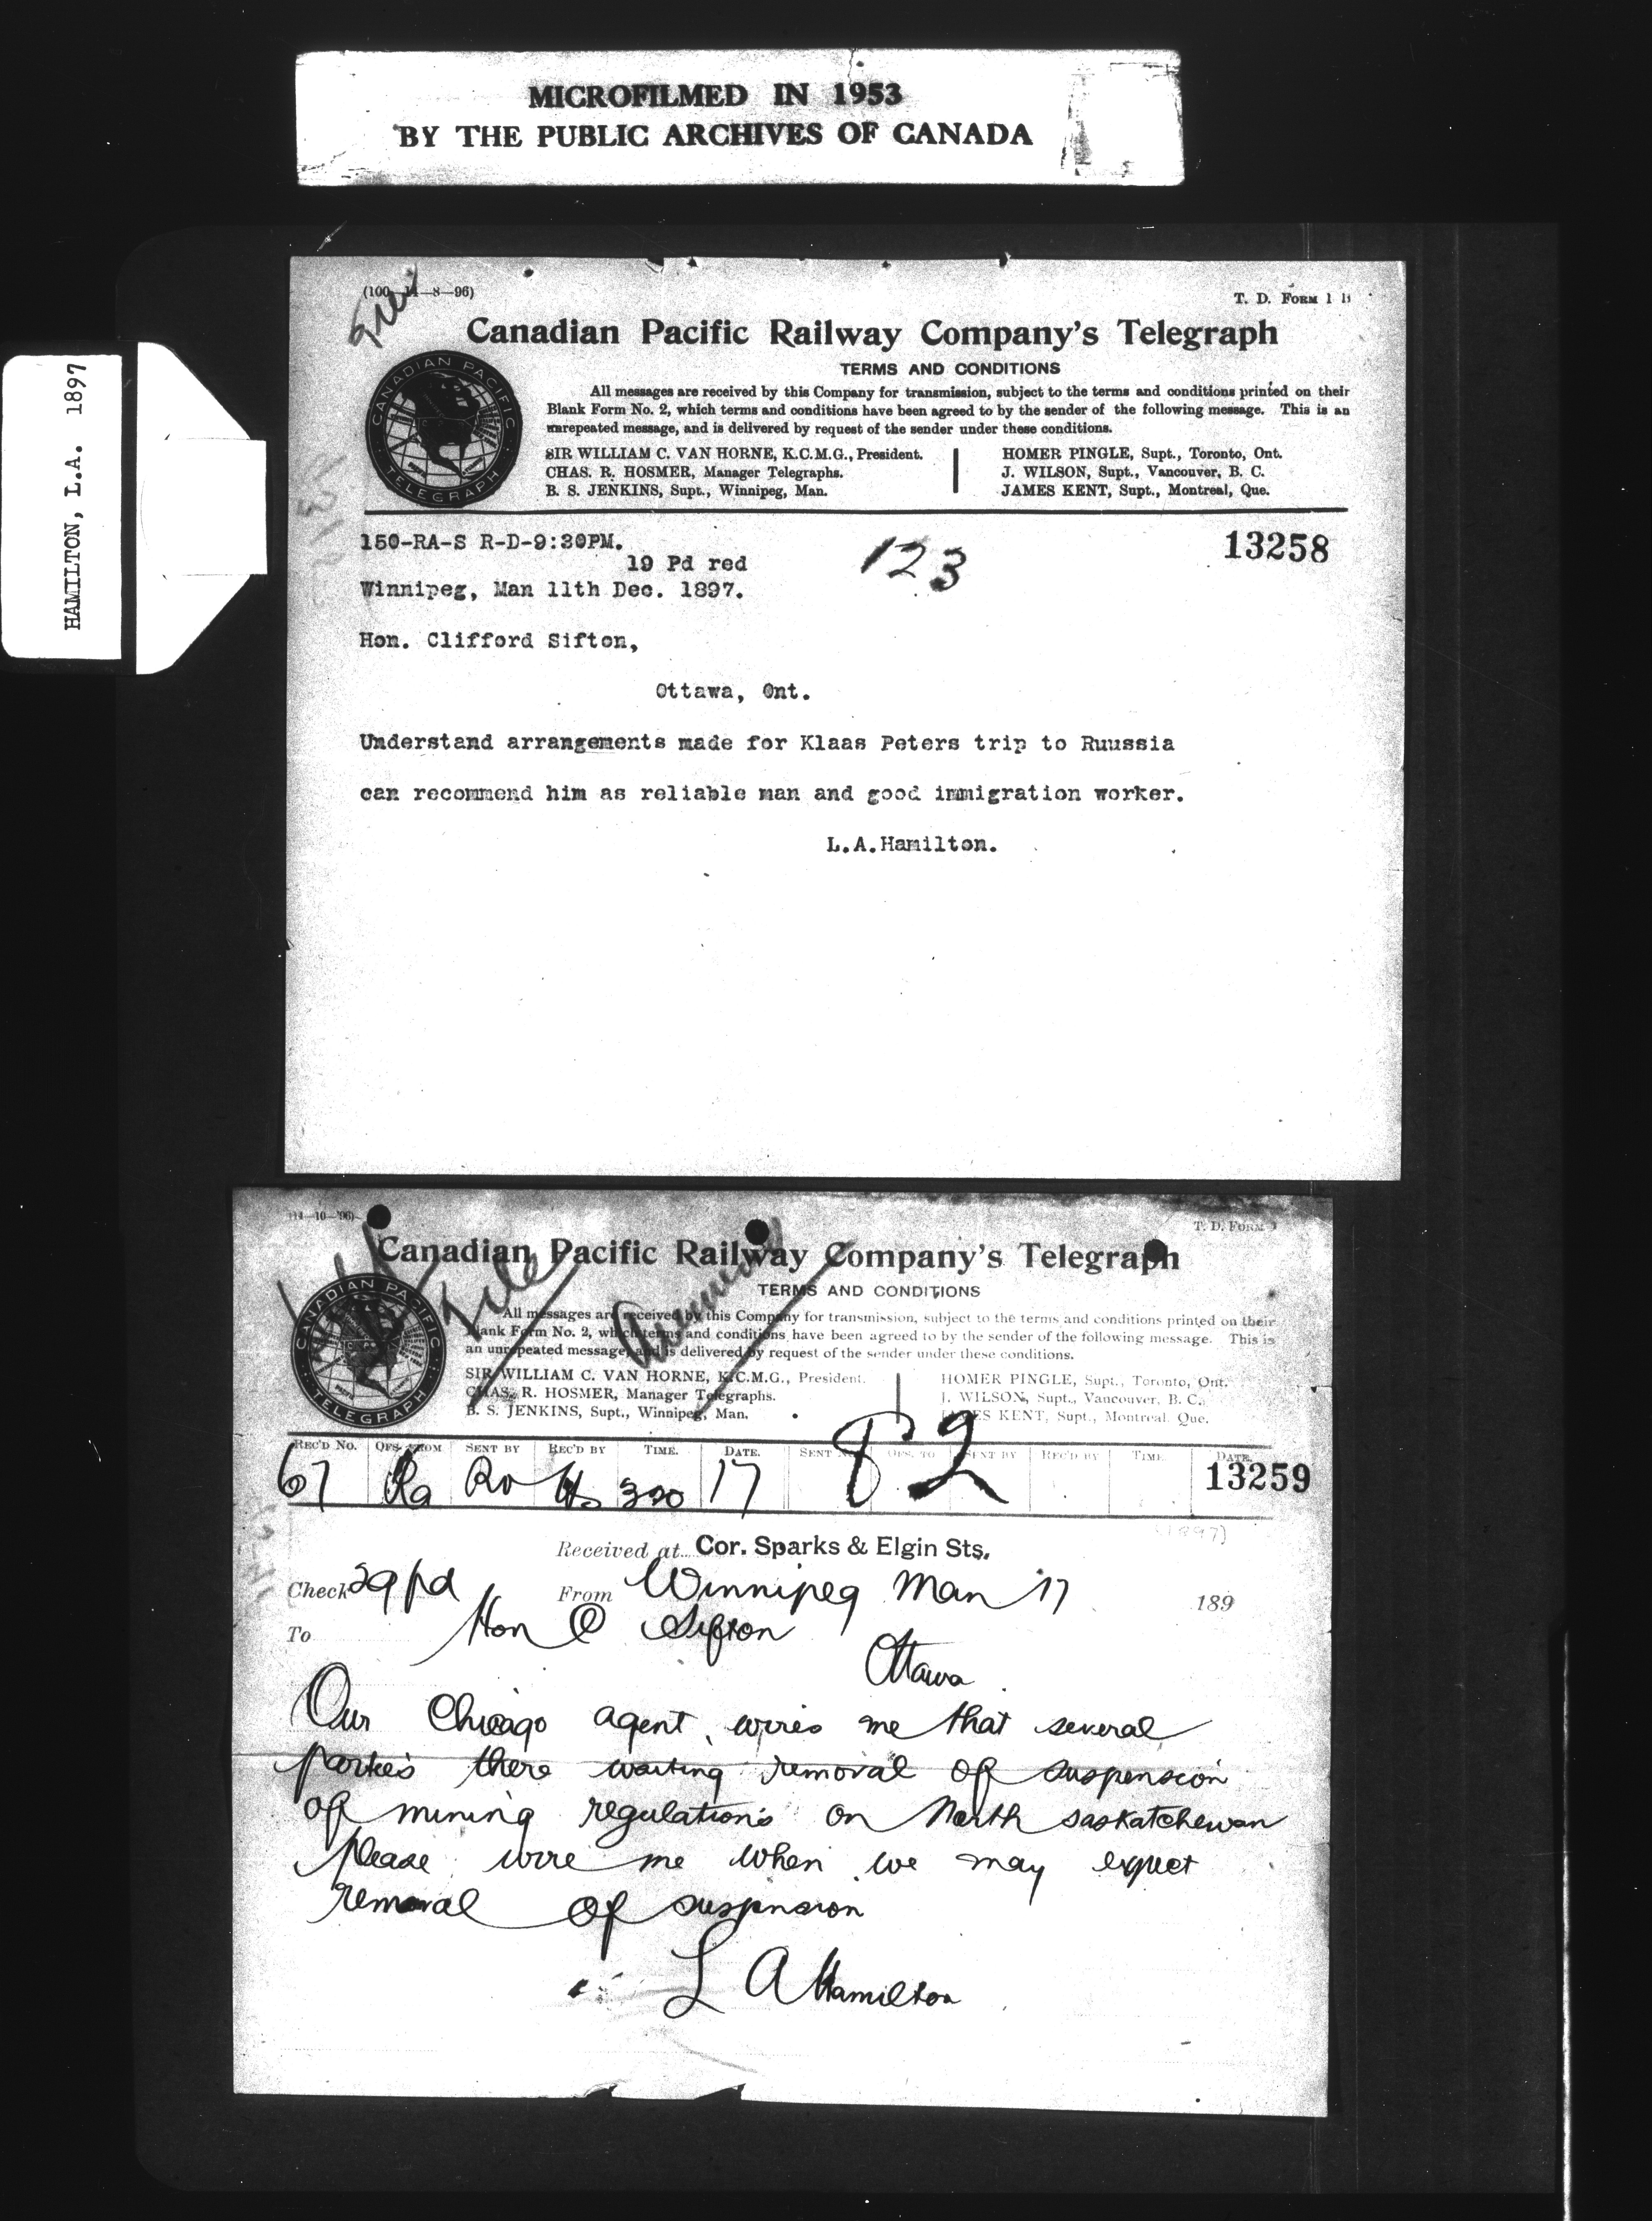 MICROFILMED IN 1953
BY THE PUBLIC ARCHIVES OF CANADA
HAMILTON, L.A. 1897
(100—14—8—96)
T. D. FORM 1
File
Canadian Pacific Railway Company's Telegraph
TERMS AND CONDITIONS
All messages are received by this Company for transmission, subject to the terms and conditions printed on their
Blank Form No. 2, which terms and conditions have been agreed to by the sender of the following message. This is an
unrepeated message, and is delivered by request of the sender under these conditions.
CANADIAN PACIFIC TELEGRAPH
SIR WILLIAM C. VAN HORNE, K.C.M.G., President.
CHAS. R. HOSMER, Manager Telegraphs.
B. S. JENKINS, Supt., Winnipeg, Man.
HOMER PINGLE, Supt., Toronto, Ont.
J. WILSON, Supt., Vancouver, B. C.
JAMES KENT, Supt., Montreal, Que.
150-RA-S R-D-9:30PM.
123
13258
19 Pd red
Winnipeg, Man 11th Dec. 1897.
Hon. Clifford Sifton,
Ottawa, Ont.
Understand arrangements made for Klaas Peters trip to Ruussia
can recommend him as reliable man and good immigration worker.
L.A.Hamilton.
T. D. FORM
Canadian Pacific Railway Company's Telegraph
File
TERMS AND CONDITIONS
All messages are received by this Company for transmission, subject to the terms and conditions printed on their
Blank Form No. 2, which terms and conditions have been agreed to by the sender of the following message. This is
an unrepeated message, and is delivered by request of the sender under these conditions.
CANADIAN PACIFIC TELEGRAPH
SIR WILLIAM C. VAN HORNE, K.C.M.G., President.
CHAS. R. HOSMER, Manager Telegraphs.
B. S. JENKINS, Supt., Winnipeg, Man.
HOMER PINGLE, Supt., Toronto, Ont.
J. WILSON, Supt., Vancouver, B. C.
JAMES KENT, Supt., Montreal, Que.
REC'D No. OFS. FROM SENT BY REC'D BY TIME. DATE. SENT OFS. TO SENT BY REC'D BY TIME. DATE.
67 Ra Ro 17 82 13259
(1897)
Received at Cor. Sparks & Elgin Sts.
Check 29 pd From Winnipeg Man 17 189
To Hon C Sifton
Ottawa
Our Chicago agent wires me that several
parties there waiting removal of suspension
of mining regulations on North Saskatchewan
please wire me when we may expect
removal of suspension
L A Hamilton